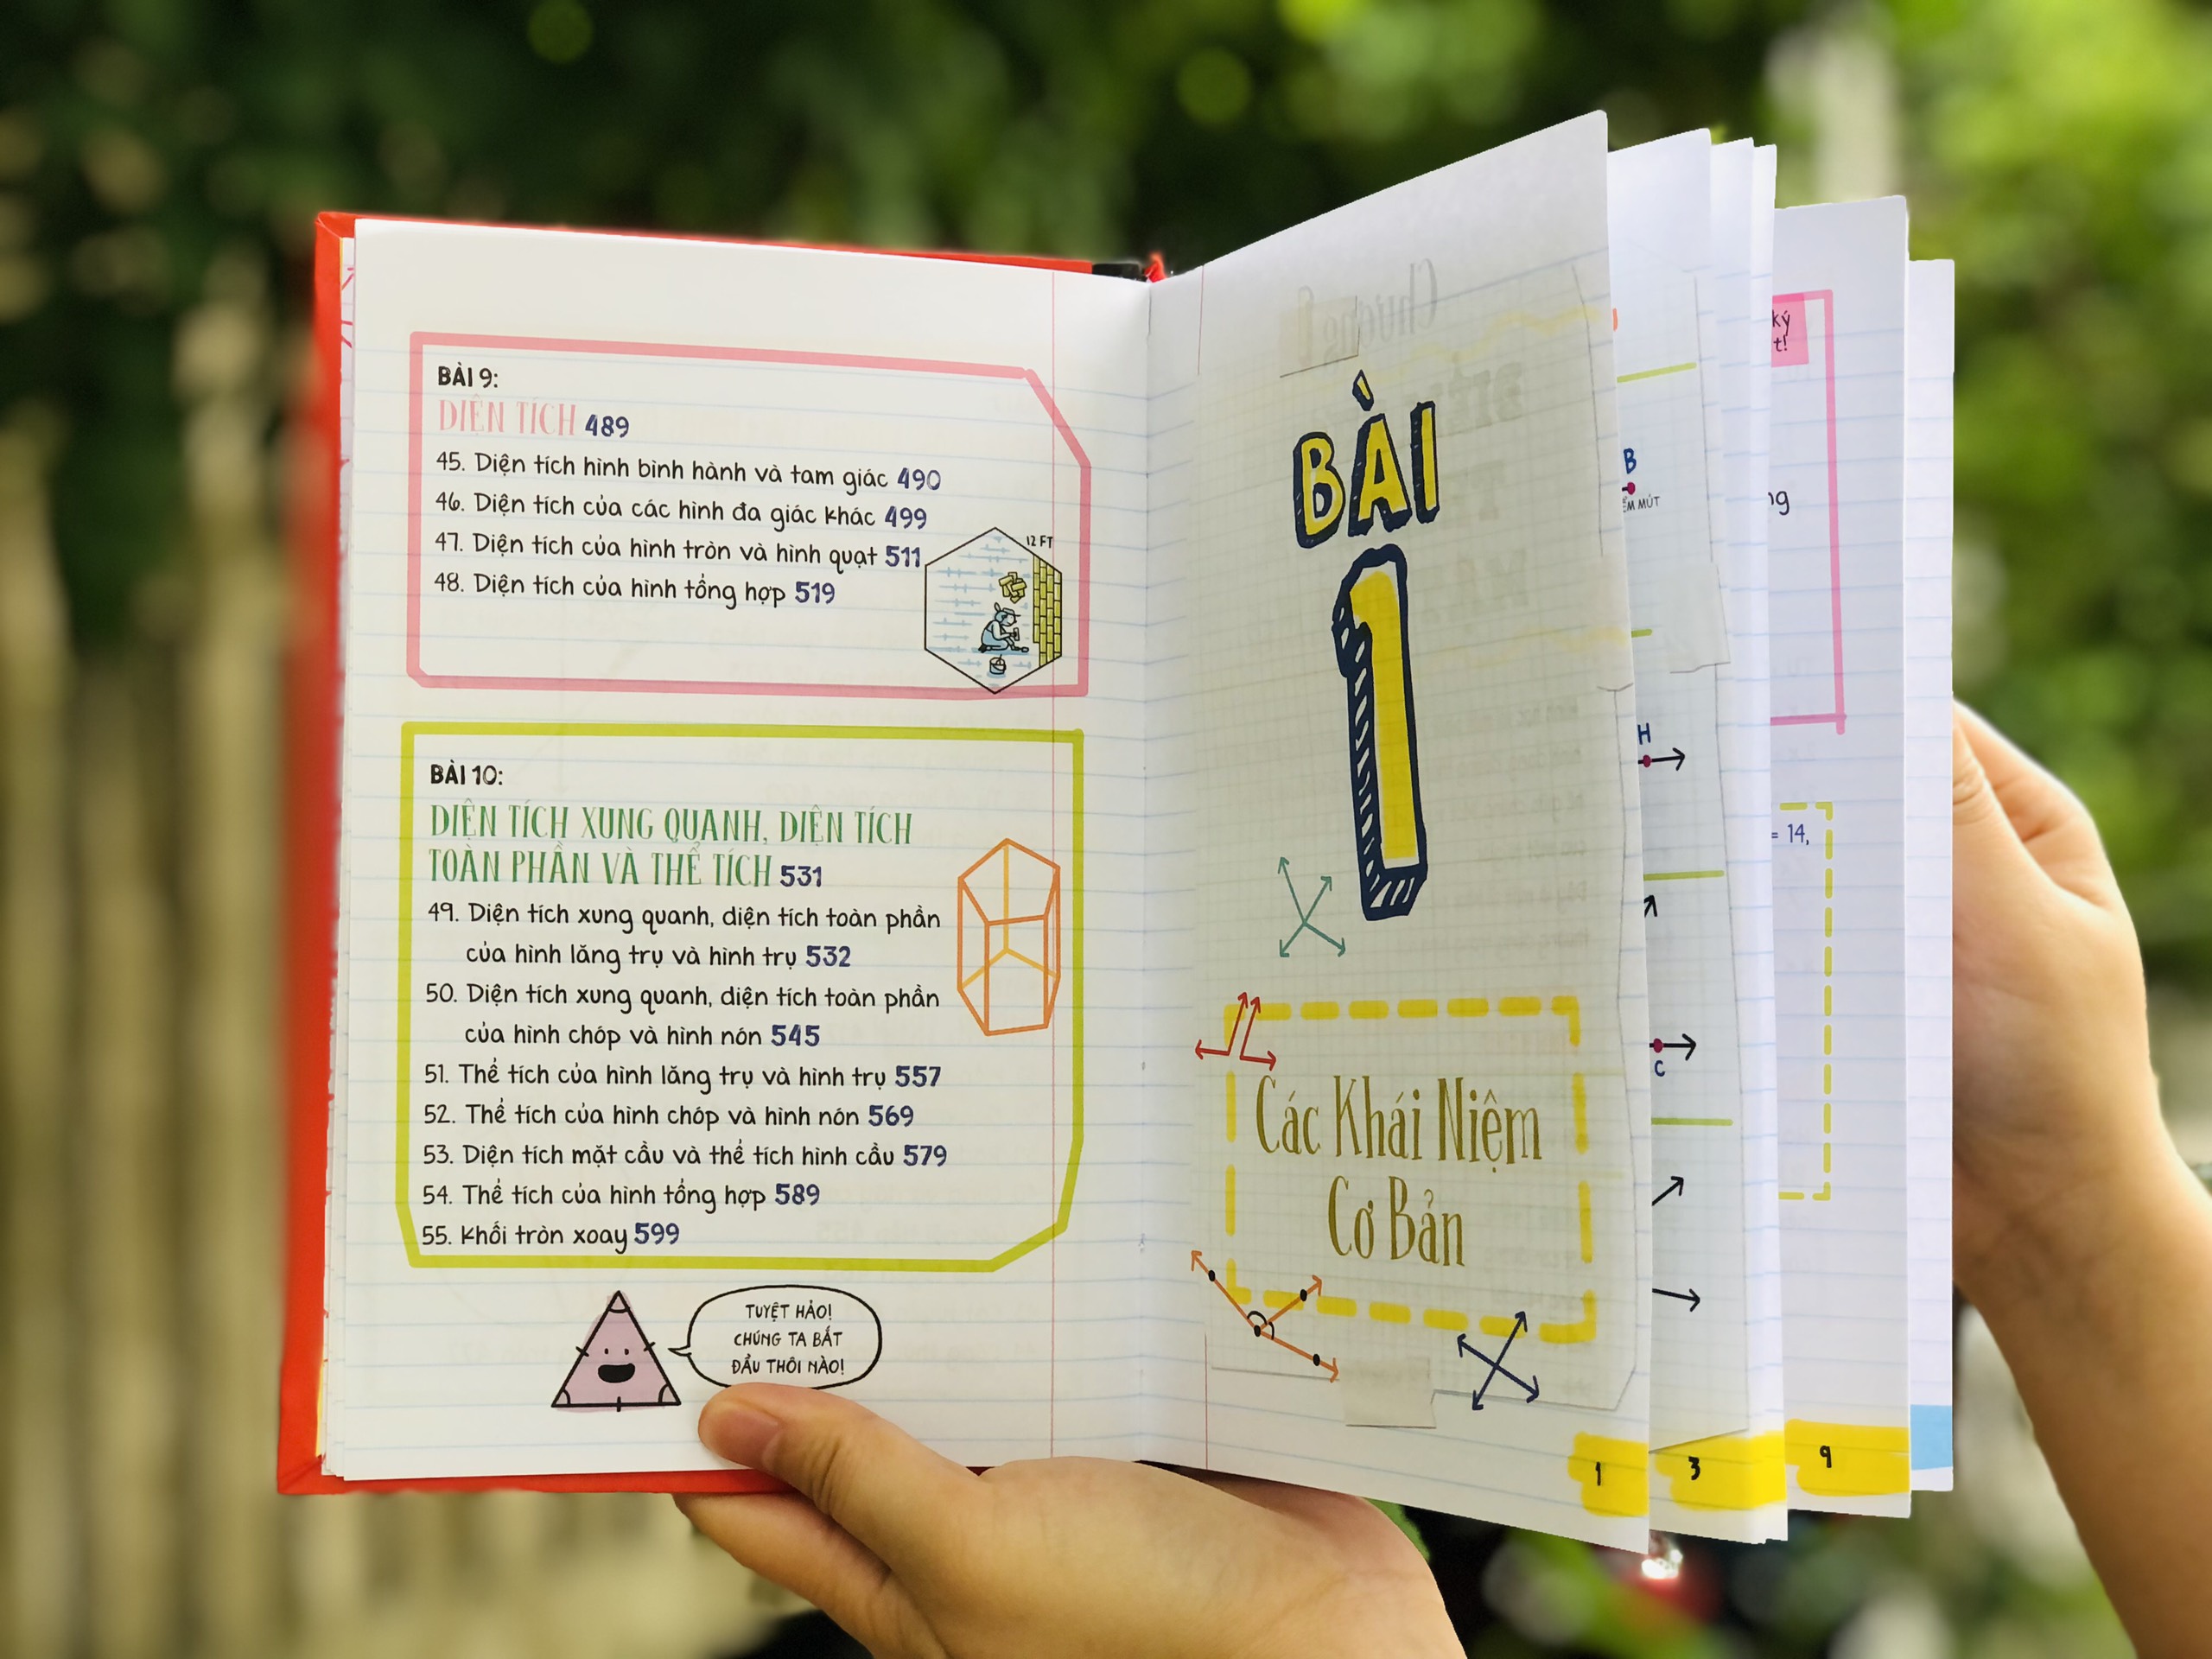 BÀI 9:
DIỆN TÍCH 489
45. Diện tích hình bình hành và tam giác 490
46. Diện tích của các hình đa giác khác 499
47. Diện tích của hình tròn và hình quạt 511
48. Diện tích của hình tổng hợp 519
12 FT
BÀI 10:
DIỆN TÍCH XUNG QUANH, DIỆN TÍCH
TOÀN PHẦN VÀ THỂ TÍCH 531
49. Diện tích xung quanh, diện tích toàn phần
của hình lăng trụ và hình trụ 532
50. Diện tích xung quanh, diện tích toàn phần
của hình chóp và hình nón 545
51. Thể tích của hình lăng trụ và hình trụ 557
52. Thể tích của hình chóp và hình nón 569
53. Diện tích mặt cầu và thể tích hình cầu 579
54. Thể tích của hình tổng hợp 589
55. Khối tròn xoay 599
TUYỆT HẢO!
CHÚNG TA BẮT
ĐẦU THÔI NÀO!
BÀI
1
Các Khái Niệm
Cơ Bản
1
B
MÚT
H
C
3
ký
t!
ng
= 14,
9